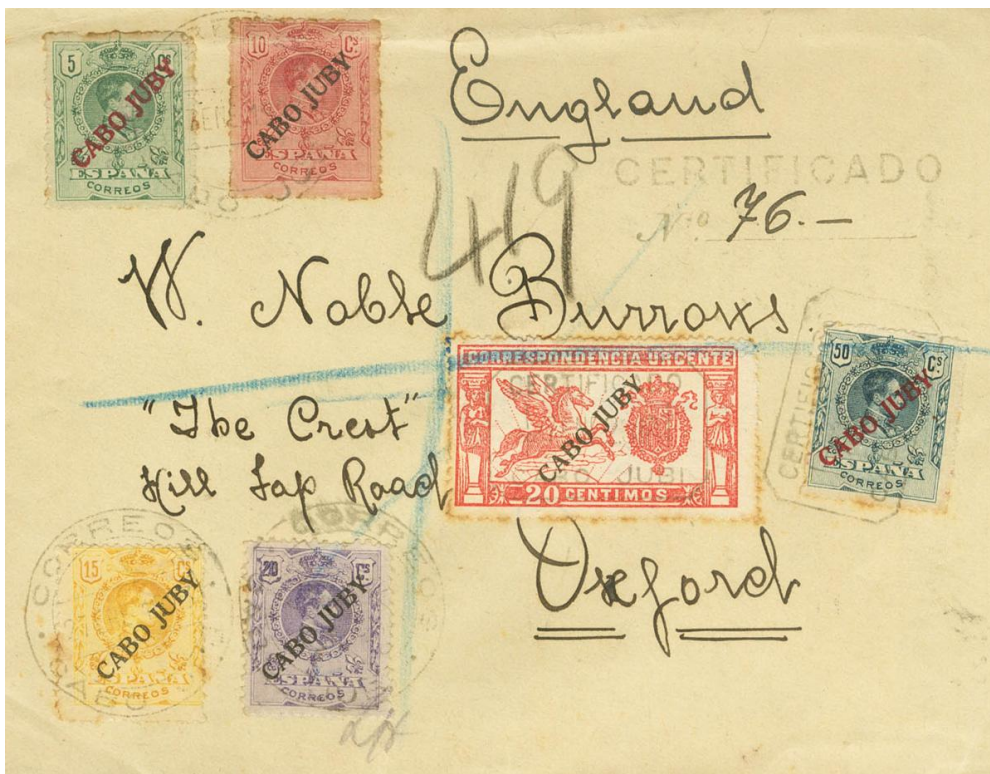 5 Cs
CABO JUBY
ESPAÑA
CORREOS
10 Cs
CABO JUBY
ESPAÑA
CORREOS
England
CERTIFICADO
Nro 76.-
419
W. Noble Burrows
"The Crest"
Hill Top Road
CORRESPONDENCIA URGENTE
CERTIFICADO
CABO JUBY
CABO JUBI
20 CENTIMOS
CERTIFICADO
50 Cs
CABO JUBY
ESPAÑA
CORREOS
Oxford
CORREOS
15 Cs
CABO JUBY
CORREOS
CORREOS
20 Cs
CABO JUBY
ESPAÑA
CORREOS